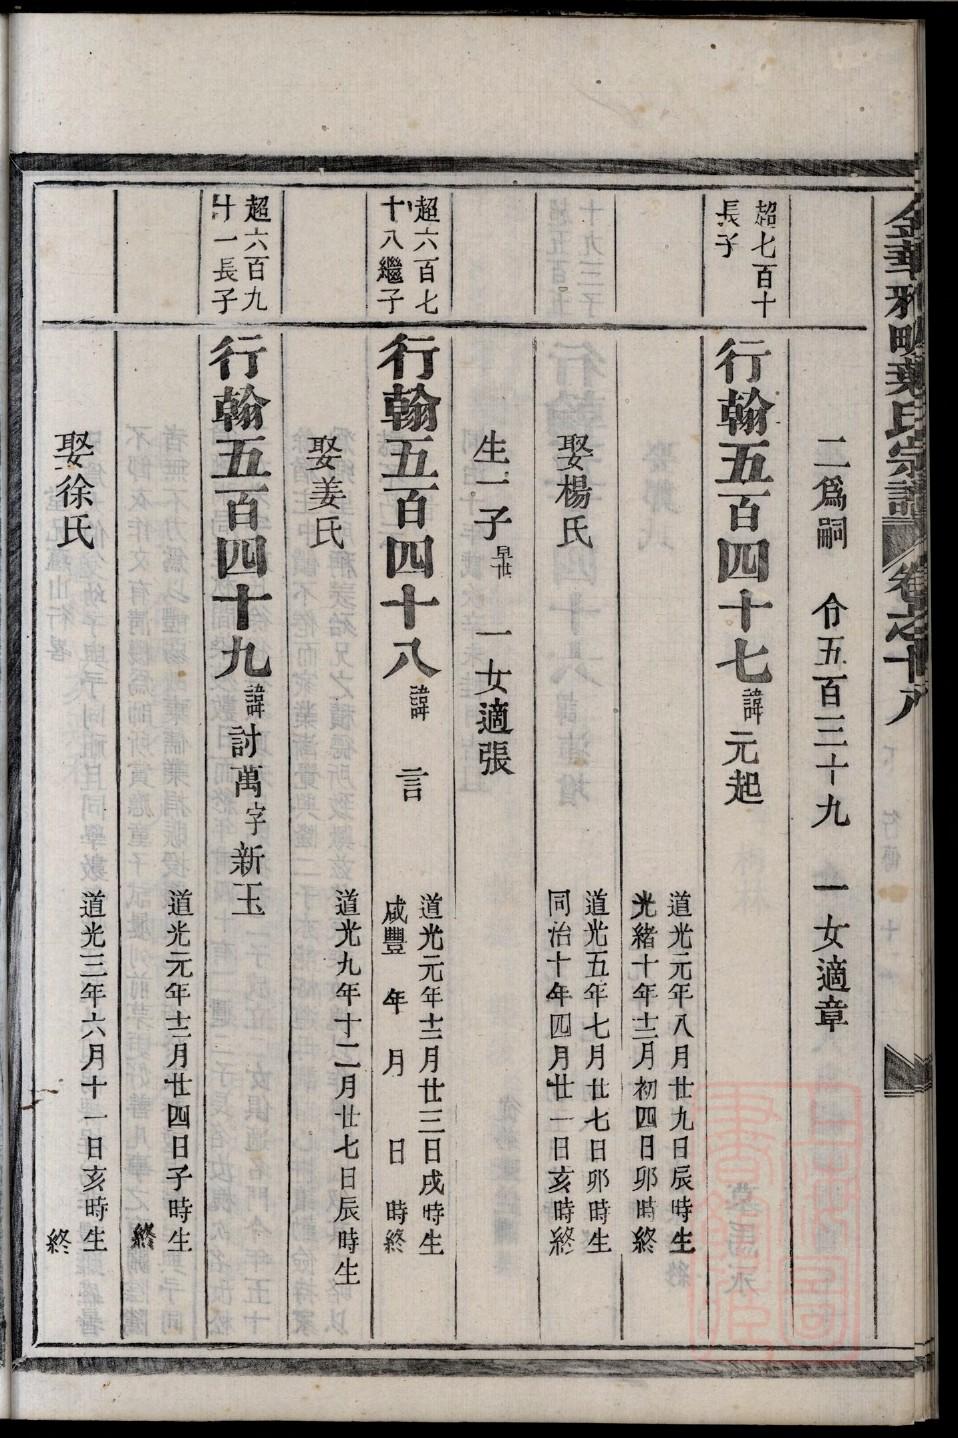 金華雅畈葉氏宗譜 卷之十八
二爲嗣 令五百三十九 一女適章
超七百十
長子
行翰五百四十七 諱元起
道光元年八月廿九日辰時生
光緒十年十二月初四日卯時終
娶楊氏
道光五年七月廿七日卯時生
同治十年四月廿一日亥時終
生一子 早世 一女適張
超六百七
十八繼子
行翰五百四十八 諱 言
道光元年十二月廿三日戌時生
咸豐 年 月 日 時終
娶姜氏
道光九年十二月廿七日辰時生
超六百九
十一長子
行翰五百四十九 諱討萬字新玉
道光元年十二月廿四日子時生
終
娶徐氏
道光三年六月十一日亥時生
終